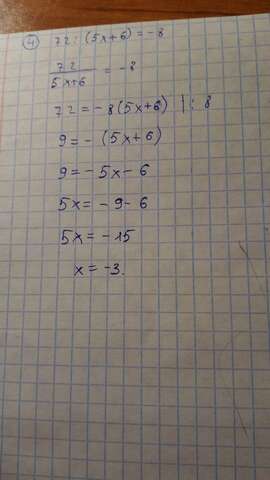 4 72 : (5x+6) = -8
72
5x+6 = -8
72 = -8(5x+6) | : 8
9 = -(5x+6)
9 = -5x - 6
5x = -9 - 6
5x = -15
x = -3.